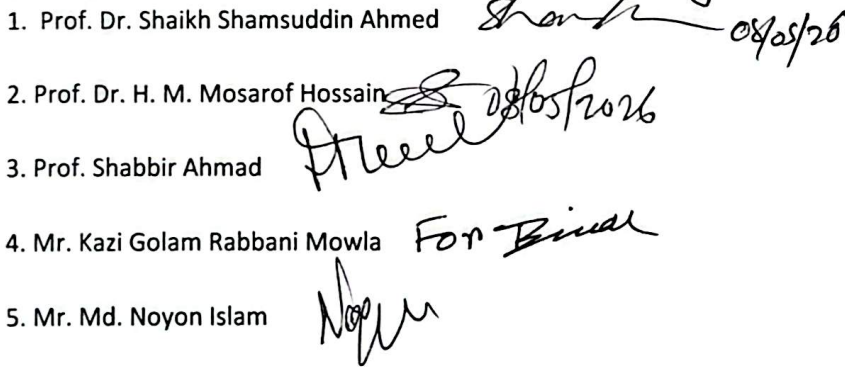 1. Prof. Dr. Shaikh Shamsuddin Ahmed 08/05/26
2. Prof. Dr. H. M. Mosarof Hossain 08/05/2026
3. Prof. Shabbir Ahmad
4. Mr. Kazi Golam Rabbani Mowla For
5. Mr. Md. Noyon Islam